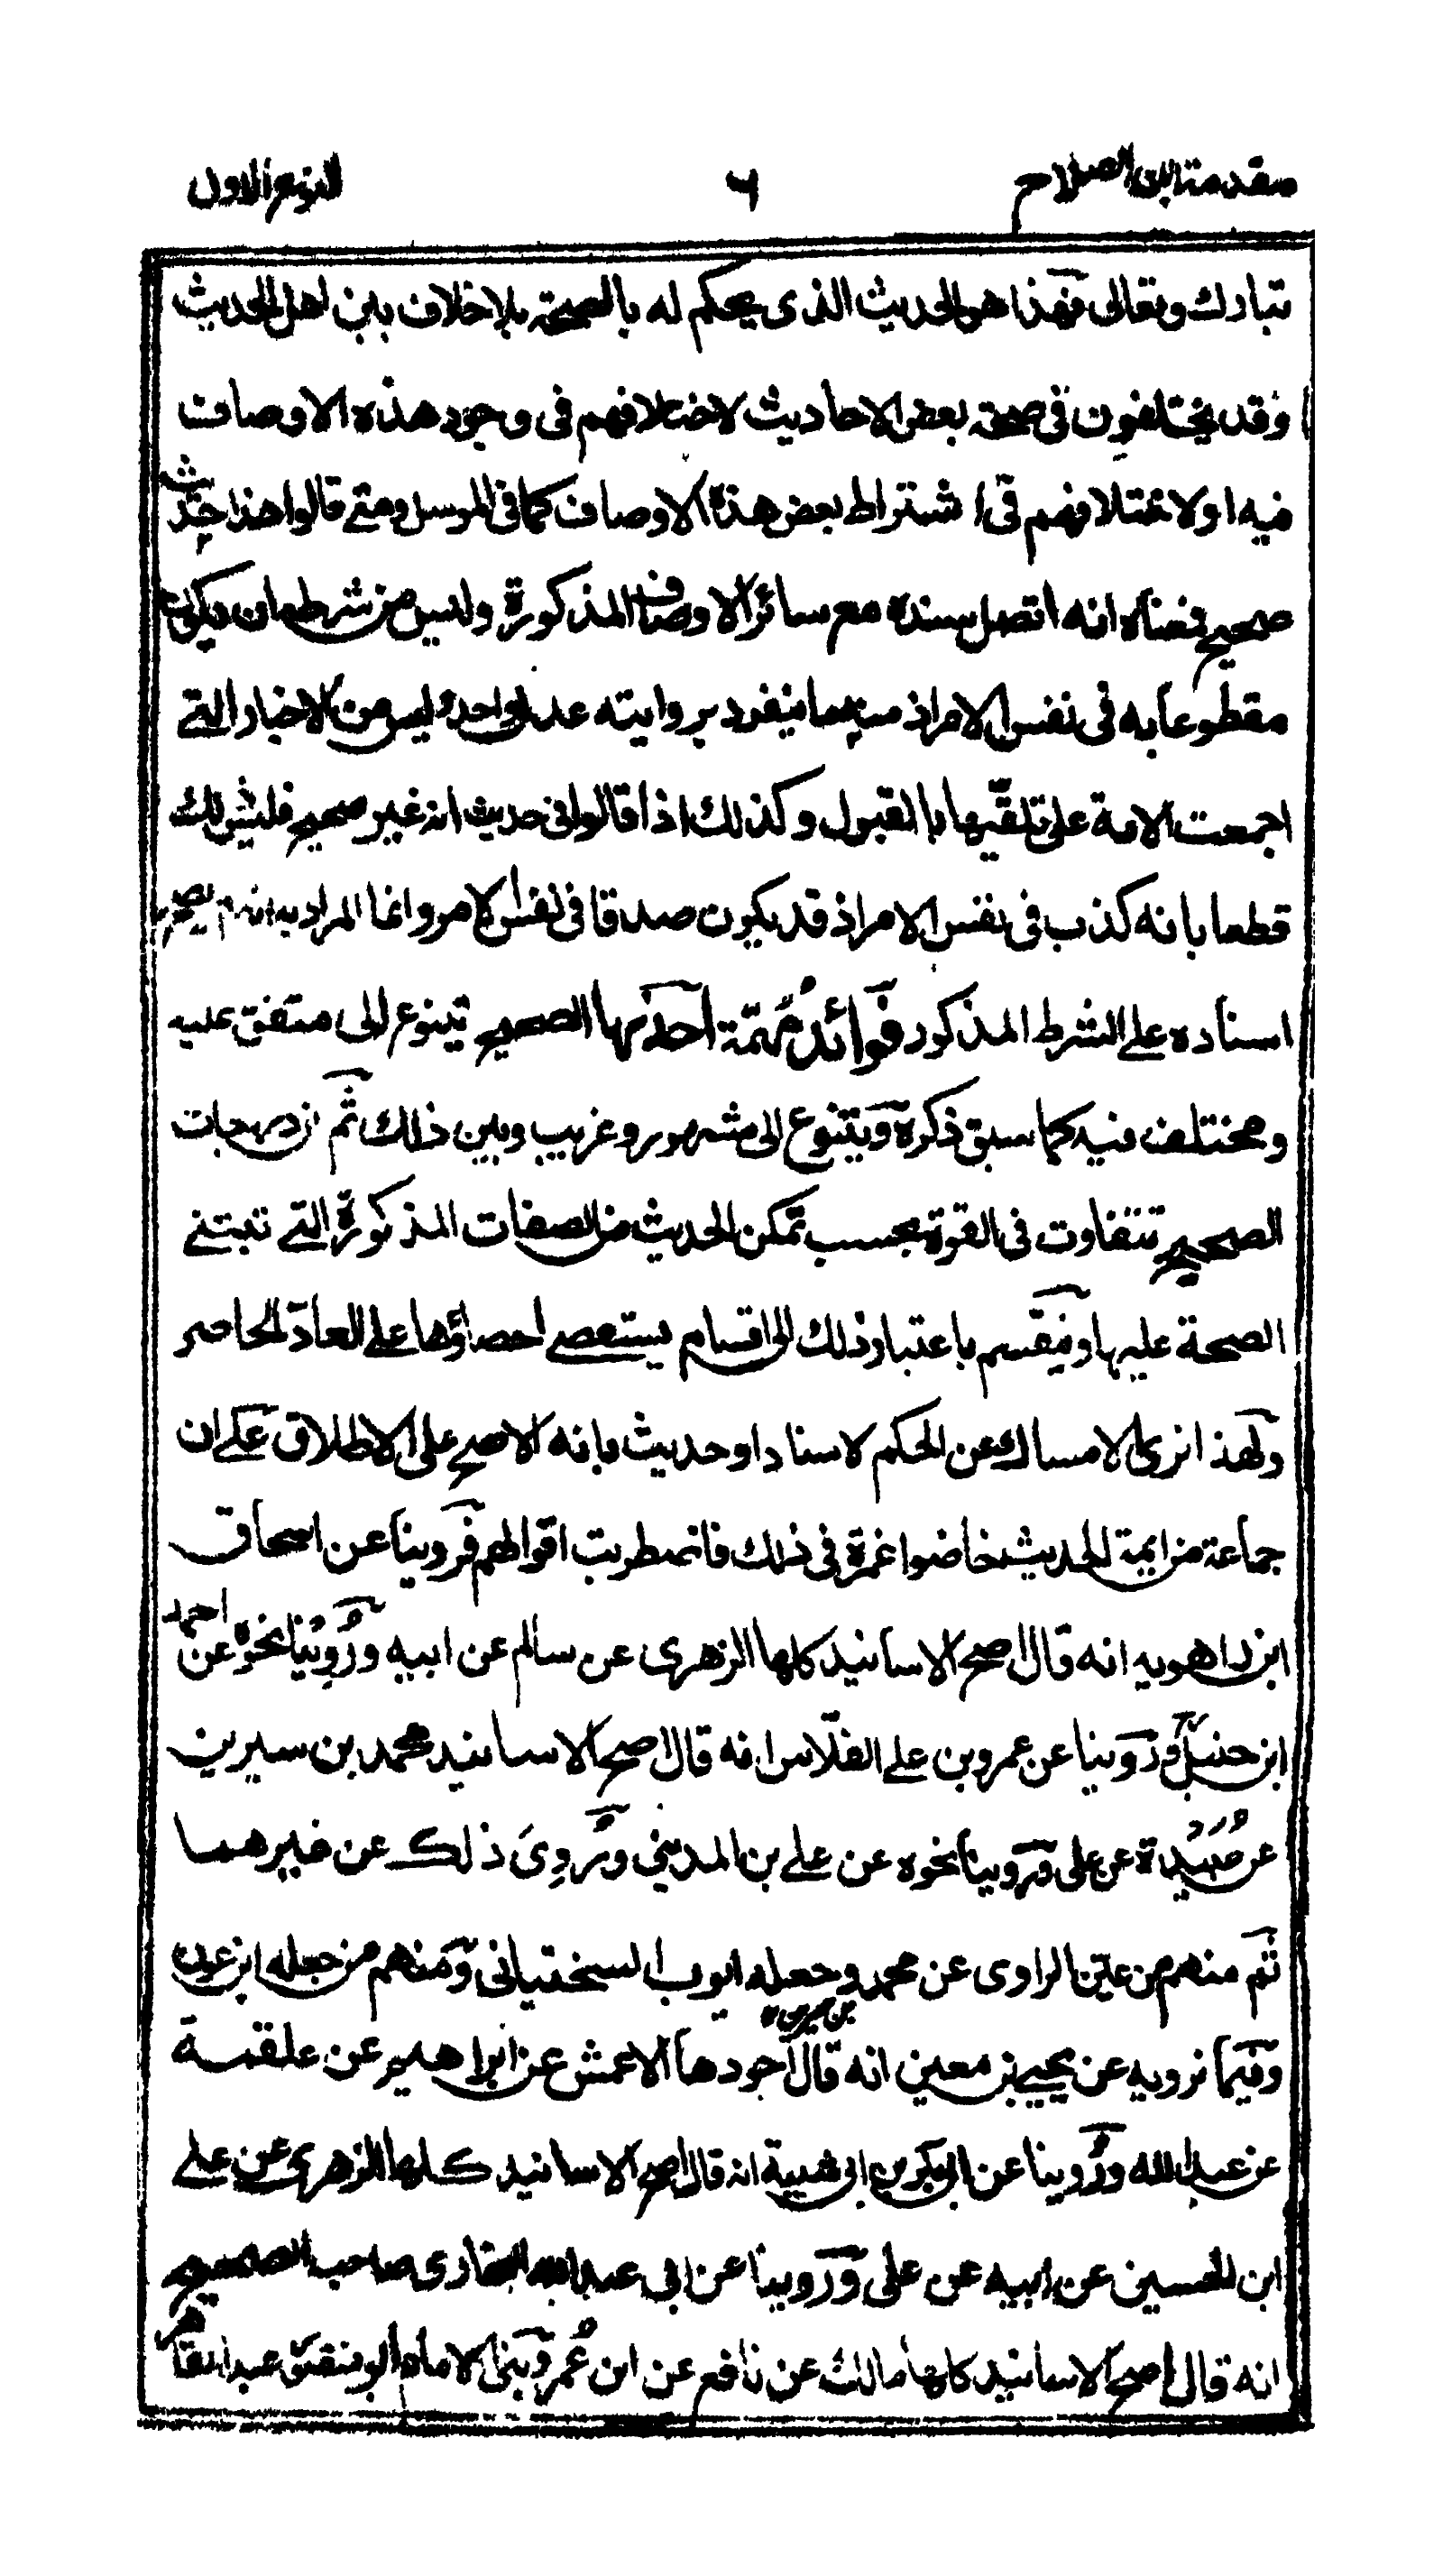 مقدمة ابن الصلاح ٦ النوع الاول
تبارك وتعالى فهذا هو الحديث الذى يحكم له بالصحة بلاخلاف بين اهل الحديث
وقد يختلفون فى صحة بعض الاحاديث لاختلافهم فى وجود هذه الاوصاف
فيه او لاختلافهم فى اشتراط بعض هذه الاوصاف كما فى المرسل ومتے قالوا هذا حديث
صحيح فمعناه انه اتصل سنده مع سائر الاوصاف المذكورة وليس من شرطه ان يكون
مقطوعا به فى نفس الامر اذ منه ما ينفرد بروايته عدل واحد وليس من الاخبار التے
اجمعت الامة على تلقيها بالقبول وكذلك اذا قالوا فى حديث انه غير صحيح فليس ذلك
قطعا بانه كذب فى نفس الامر اذ قد يكون صدقا فى نفس الامر وانما المراد به انه لم يصح
اسناده علے الشرط المذكور فوائد مهمّة احدٰها الصحيح يتنوع الى متفق عليه
ومختلف فيه كما سبق ذكره ويتنوع الى مشهور وغريب وبين ذلك ثم ان درجات
الصحيح تتفاوت فى القوة بحسب تمكن الحديث من الصفات المذكورة التے تبتنے
الصحة عليها وينقسم باعتبار ذلك الى اقسام يستعصے احصاؤها علے العادّ الحاصر
ولهذا نرى الامساك عن الحكم لاسناد او حديث بانه الاصح على الاطلاق علے ان
جماعة من ايمة الحديث خاضوا غمرة فى ذلك فاضطربت اقوالهم فروينا عن اسحاق
ابن راهويه انه قال اصح الاسانيد كلها الزهرى عن سالم عن ابيه وروينا نحوه عن احمد
ابن حنبل وروينا عن عمرو بن علے الفلّاس انه قال اصح الاسانيد محمد بن سيرين
عن عبيدة عن على وروينا نحوه عن علے بن المدينى وروى ذلك عن غيرهما
ثم منهم من عيّن الراوى عن محمد وجعله ايوب السختيانى ومنهم من جعله ابن عون
بن سيرين ١٢
وفيما نرويه عن يحيے بن معين انه قال اجودها الاعمش عن ابراهيم عن علقمة
عن عبد الله وروينا عن ابى بكر بن ابى شيبة انه قال اصح الاسانيد كلها الزهرى عن علے
ابن الحسين عن ابيه عن على وروينا عن ابى عبدالله البخارى صاحب الصحيح
انه قال اصح الاسانيد كلها مالك عن نافع عن ابن عمر وبنى الامام ابو منصور عبد القاهر